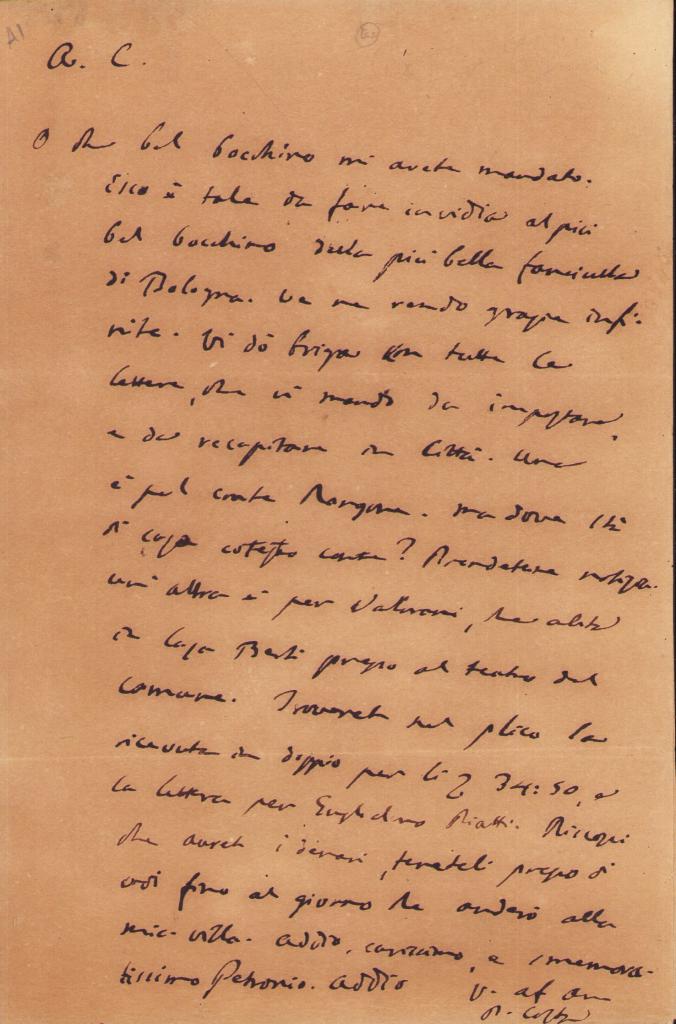 A. C.
O che bel bocchino mi avete mandato.
Esso è tale da fare invidia al più
bel bocchino della più bella fanciulla
di Bologna. Ve ne rendo grazie infi-
nite. Vi dò briga con tutte le
lettere, che vi mando da impostare,
e da recapitare in Città. Una
è pel conte Rangone. ma dove stà
di casa cotesto conte? Prendetene notizia.
un' altra è per Valorani, che abita
in Casa Berti presso al teatro del
comune. Troverete nel plico la
ricevuta in doppio per li 34:50, e
la lettera per Riatti. Riscossi
che avrete i denari, teneteli presso di
voi fino al giorno che anderò alla
mia villa. addio, carissimo, e smemora-
tissimo Petronio. addio
V. af am
P. Costa